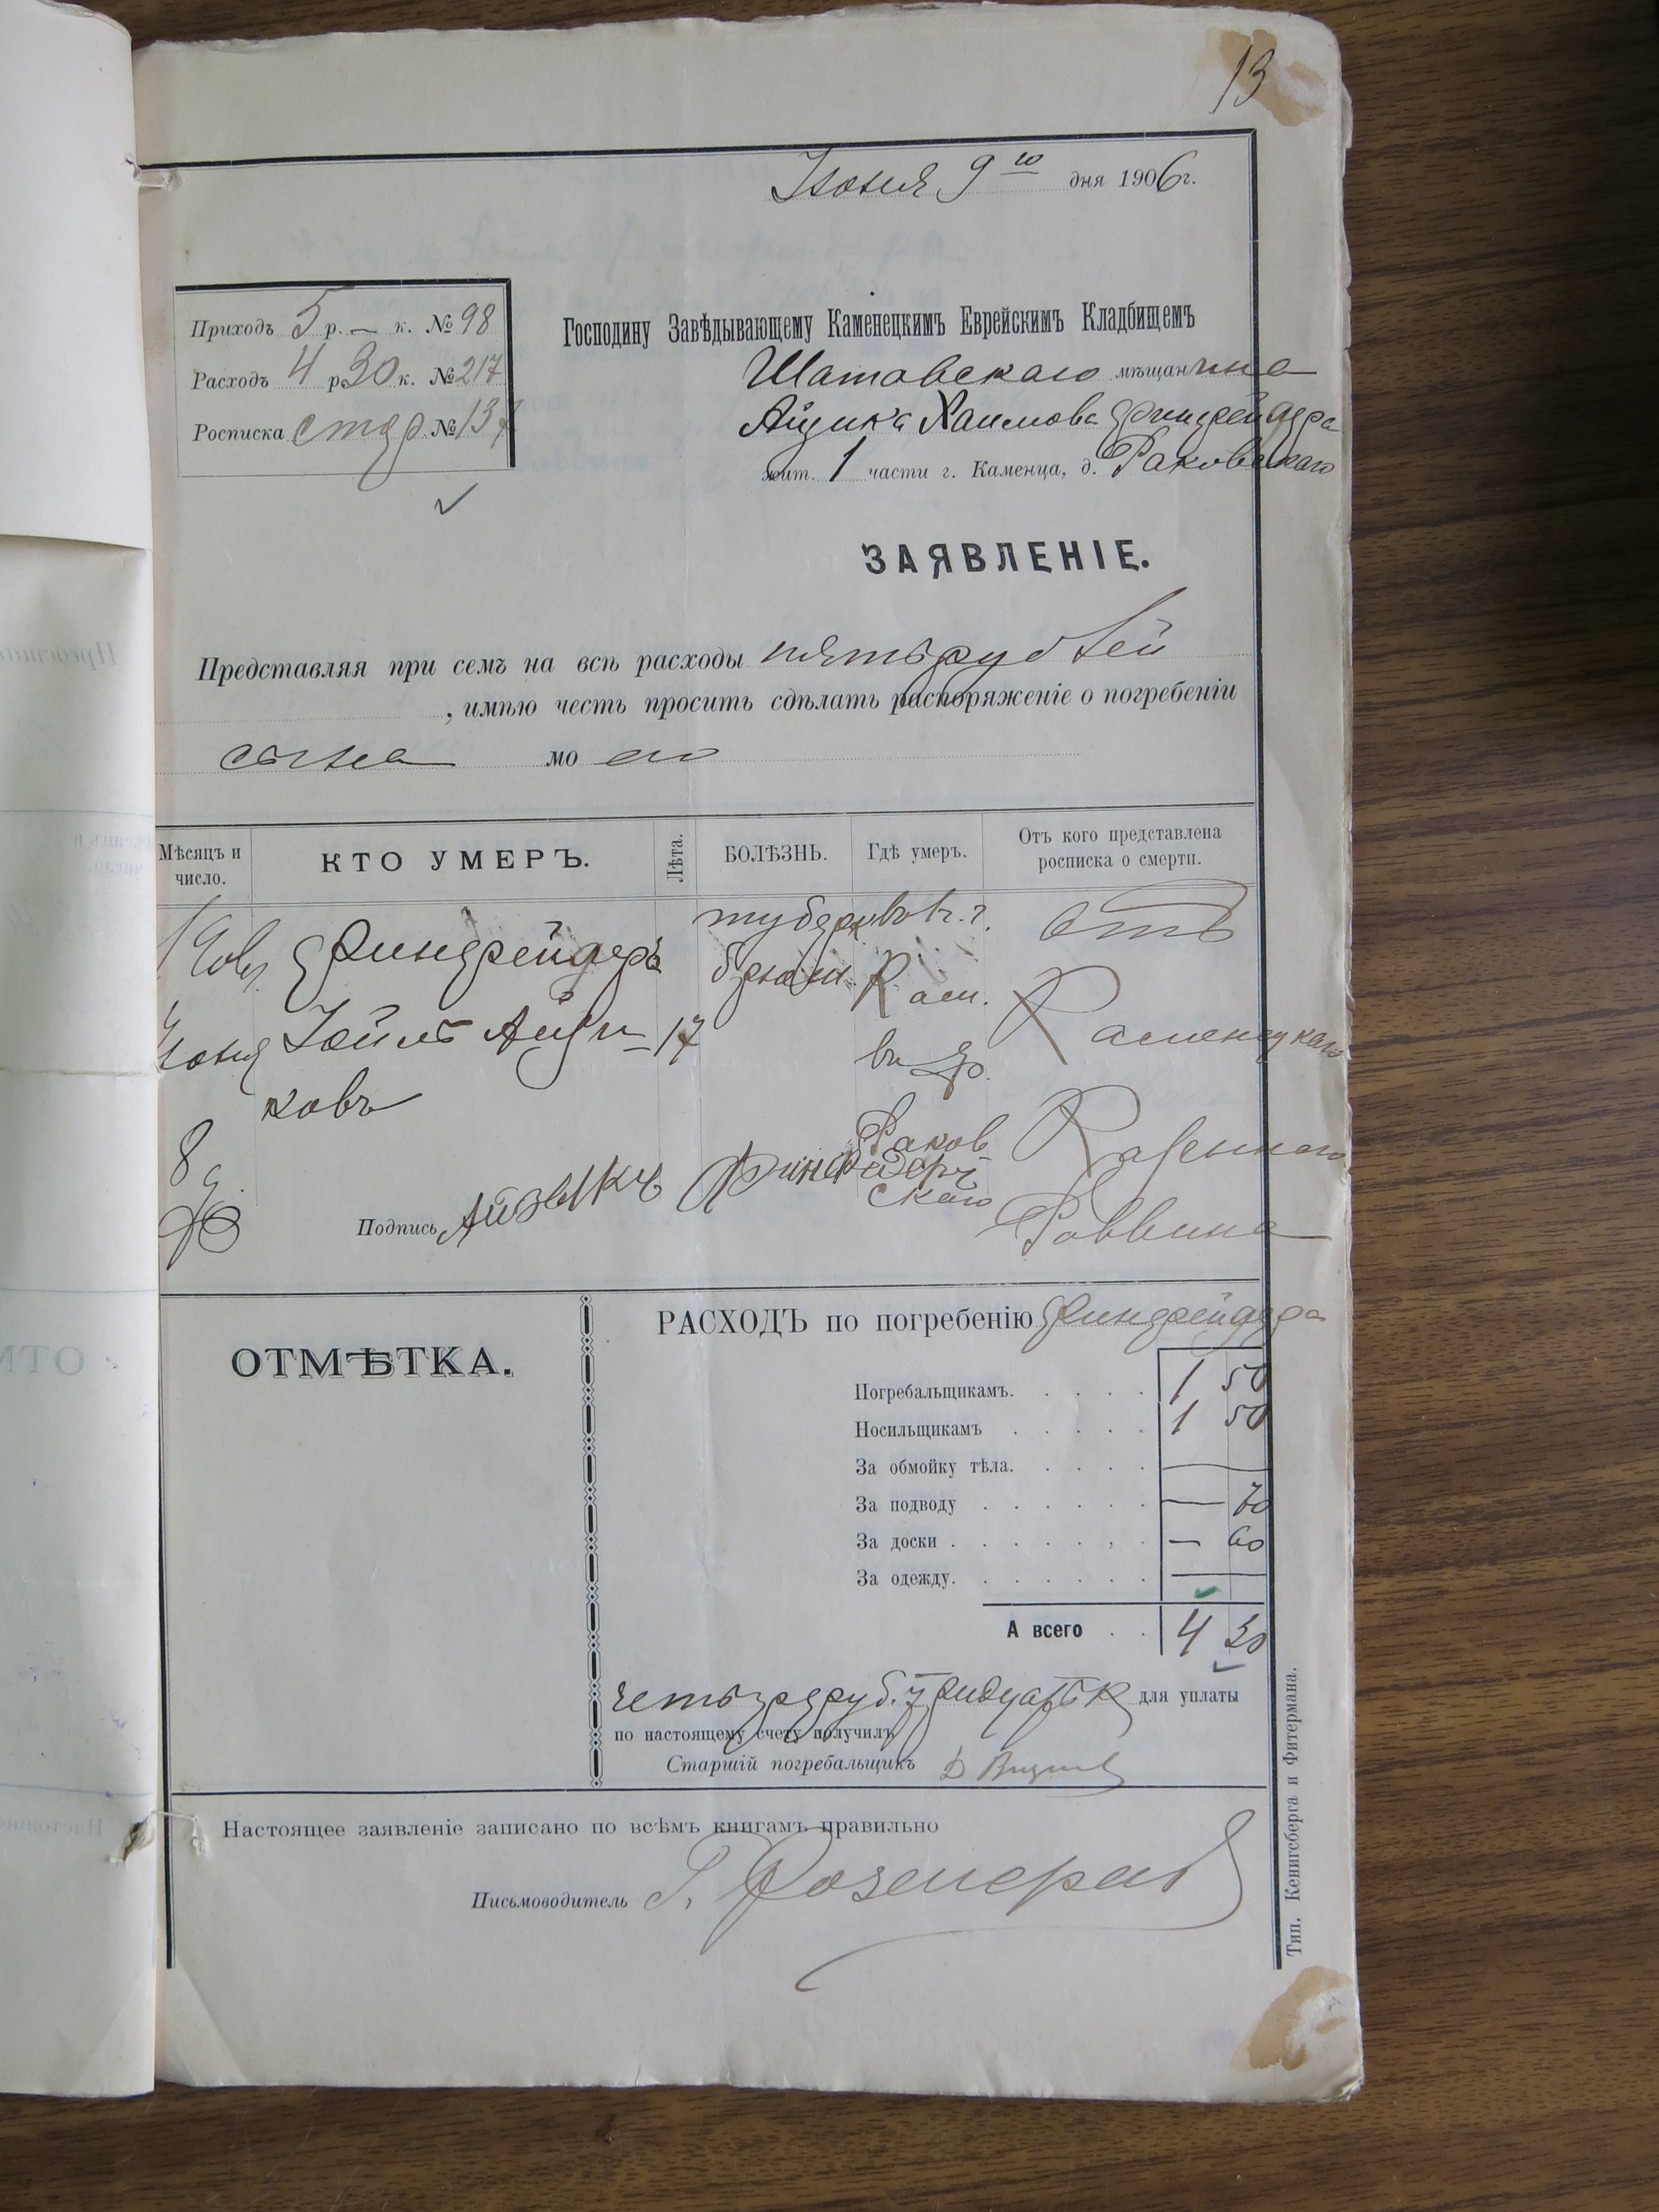 13
Іюня 9 го дня 1906 г.
Приходъ 5 р. — к. № 98
Расходъ 4 р 30 к. № 217
Росписка стар. № 137
Господину Завѣдывающему Каменецкимъ Еврейскимъ Кладбищемъ
Шатавскаго мѣщанина
Айзика Хаимова
жит. 1 части г. Каменца, д. Раковскаго
ЗАЯВЛЕНІЕ.
Представляя при семъ на всѣ расходы пять рублей
, имѣю честь просить сдѣлать распоряженіе о погребеніи
сына моего
Мѣсяцъ и число.
КТО УМЕРЪ.
Лѣта.
БОЛѢЗНЬ.
Гдѣ умеръ.
Отъ кого представлена росписка о смерти.
туберк въ г. отъ
брюшн. Кам.
Іюня Айзи- 17 Каменецкаго
ковъ въ д.
8 Раков Казеннаго
скаго Раввина
Подпись Айзыкъ
РАСХОДЪ по погребенію
ОТМѢТКА.
Погребальщикамъ. 1 50
Носильщикамъ 1 50
За обмойку тѣла. —
За подводу — 70
За доски — 60
За одежду. —
А всего 4 30
четыре руб. тридцать к для уплаты
по настоящему счету получилъ
Старшій погребальщикъ
Настоящее заявленіе записано по всѣмъ книгамъ правильно
Письмоводитель Г.
Тип. Кенигсберга и Фитермана.